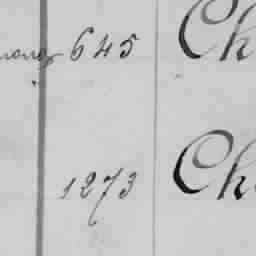 645 Ch
1273 Ch